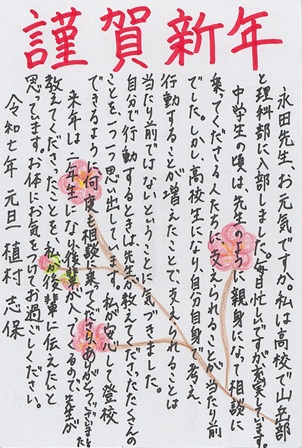 謹賀新年
永田先生お元気ですか。私は高校で山岳部
と理科部に入部しました。毎日忙しいですが充実しています。
中学生の頃は、先生のように親身になって相談に
乗ってくださる人たちに支えられることが当たり前
でした。しかし、高校生になり、自分自身で考え、
行動することが増えたことで、支えられることは
当たり前ではないということに気づきました。
自分で行動するときは先生が教えてくださったたくさんの
ことを、一つ一つ思い出しています。私が安心して登校
できるように何度も相談に乗ってくださりありがとうございました
来年は二年生になり、後輩が入ってくるので、先生が
教えてくださったことを、私が後輩に伝えたいと
思っています。お体にお気をつけてお過ごしください。
令和七年 元旦 植村 志保